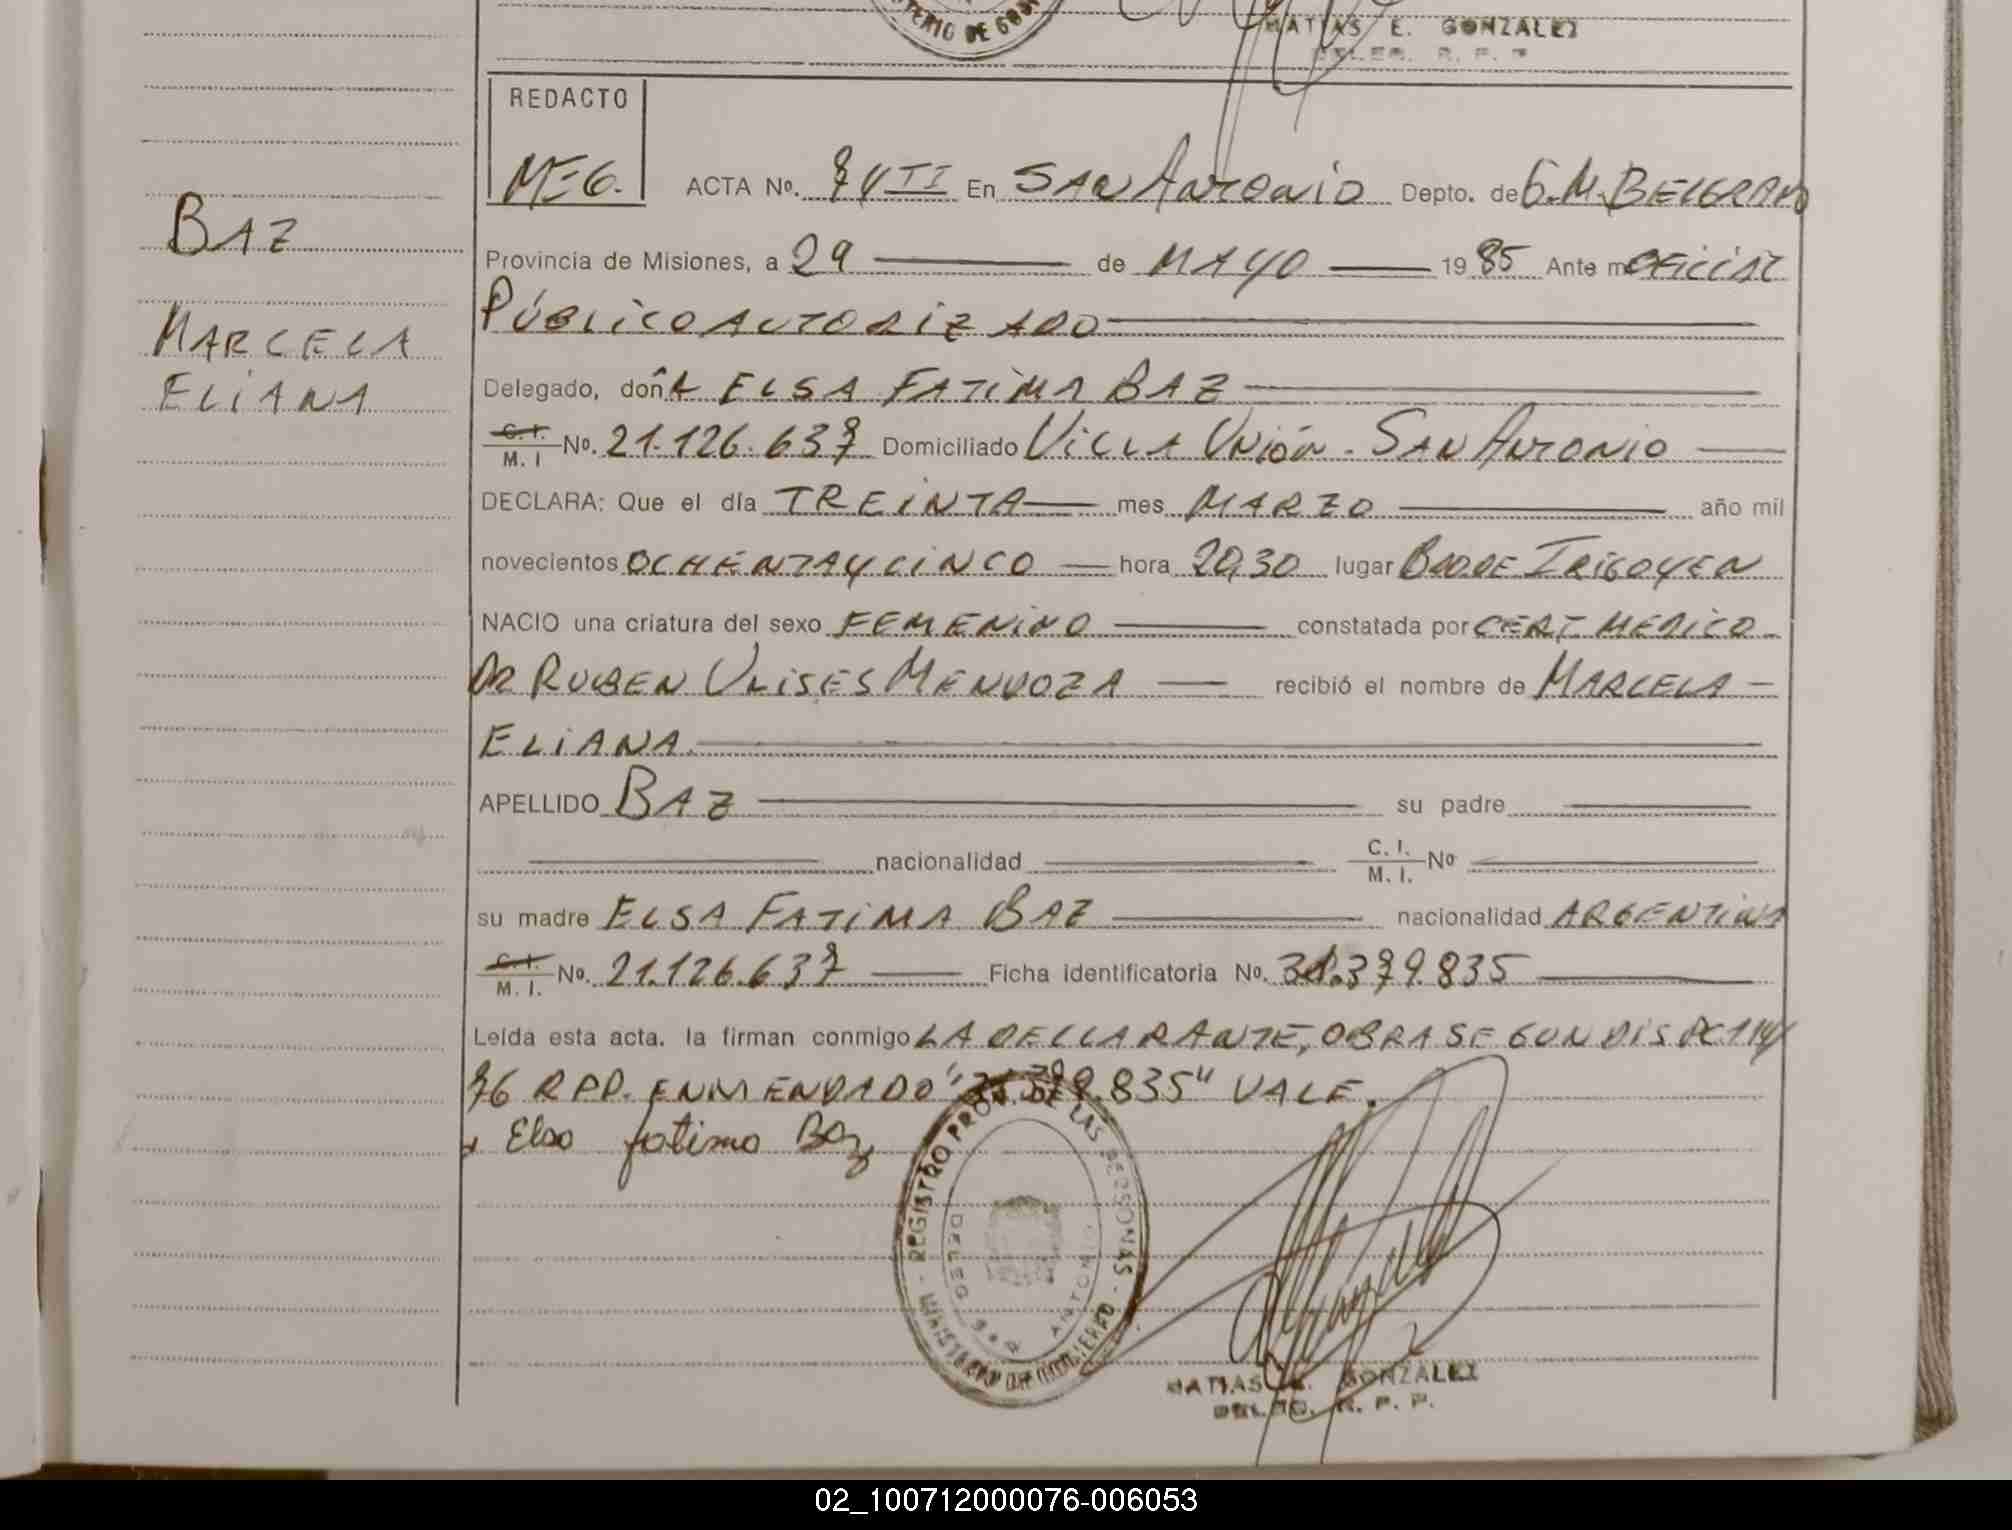 TERIO DE GOB
MATIAS E. GONZALEZ
DELEG. R. P. P
REDACTO
MEG. ACTA Nº. 74 TI En SAN ANTONIO Depto. de G.M. BELGRANO
BAZ
Provincia de Misiones, a 29 de MAYO 1985 Ante mi OFICIAL
PÚBLICO AUTORIZADO
MARCELA
ELIANA
Delegado, doñA ELSA FATIMA BAZ
C. I. M. I Nº. 21.126.637 Domiciliado VILLA UNIÓN - SAN ANTONIO
DECLARA: Que el día TREINTA mes MARZO año mil
novecientos OCHENTA Y CINCO hora 20,30 lugar BDO. DE IRIGOYEN
NACIO una criatura del sexo FEMENINO constatada por CERT MEDICO
DR RUBEN ULISES MENDOZA recibió el nombre de MARCELA
ELIANA
APELLIDO BAZ su padre
nacionalidad C. I. M. I. Nº
su madre ELSA FATIMA BAZ nacionalidad ARGENTINA
C. I. M. I. Nº. 21.126.637 Ficha identificatoria No. 31.379.835
Leída esta acta. la firman conmigo LA DECLARANTE, OBRA SEGUN DISPC 114/
76 RPP. ENMENDADO "31.379.835" VALE.
Elsa fatima Baz
REGISTRO PROV. DE LAS PERSONAS - MINISTERIO DE GOBIERNO
DELEG. SAN ANTONIO
MATIAS E. GONZALEZ
DELEG. R. P. P.
02_100712000076-006053